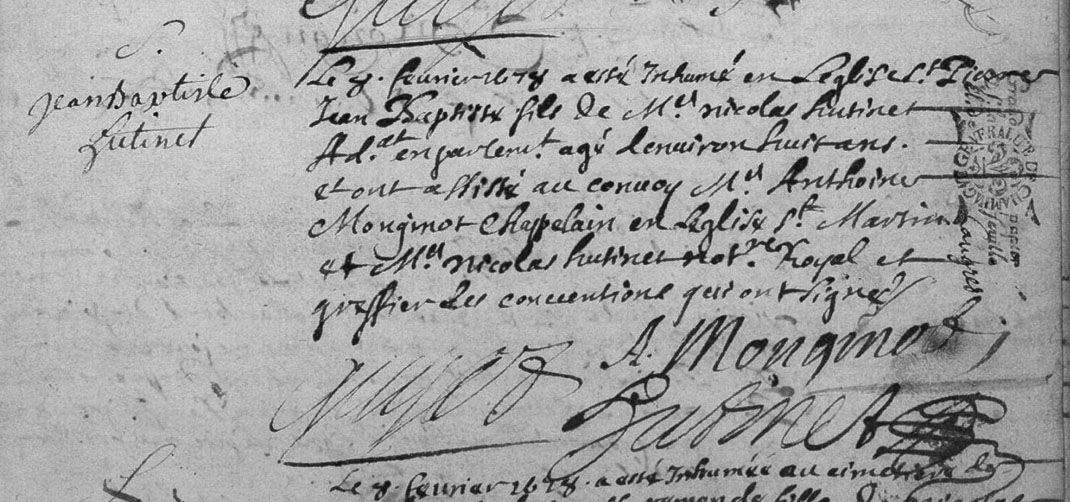 S.
Jean Baptiste
hutinet
Le 8. fevrier 1678 a esté Inhumé en Leglise st. Pierre
Jean Baptiste fils de Me. nicolas hutinet
Ad.at en parlem.t agé denuiron huit ans.
et ont assisté au conuoy Me. Anthoine
Monginot Chappelain en Leglise st. Martin
et Me. nicolas hutinet not.re Royal et
greffier des conuentions qui ont signé
A. Monginot
hutinet
Le 8. fevrier 1678. a esté Inhumée au cimetiere de
fille